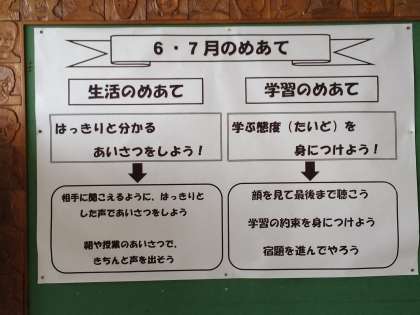 6・7月のめあて
生活のめあて
はっきりと分かる
あいさつをしよう！
相手に聞こえるように、はっきりと
した声であいさつをしよう
朝や授業のあいさつで、
きちんと声を出そう
学習のめあて
学ぶ態度（たいど）を
身につけよう！
顔を見て最後まで聴こう
学習の約束を身につけよう
宿題を進んでやろう